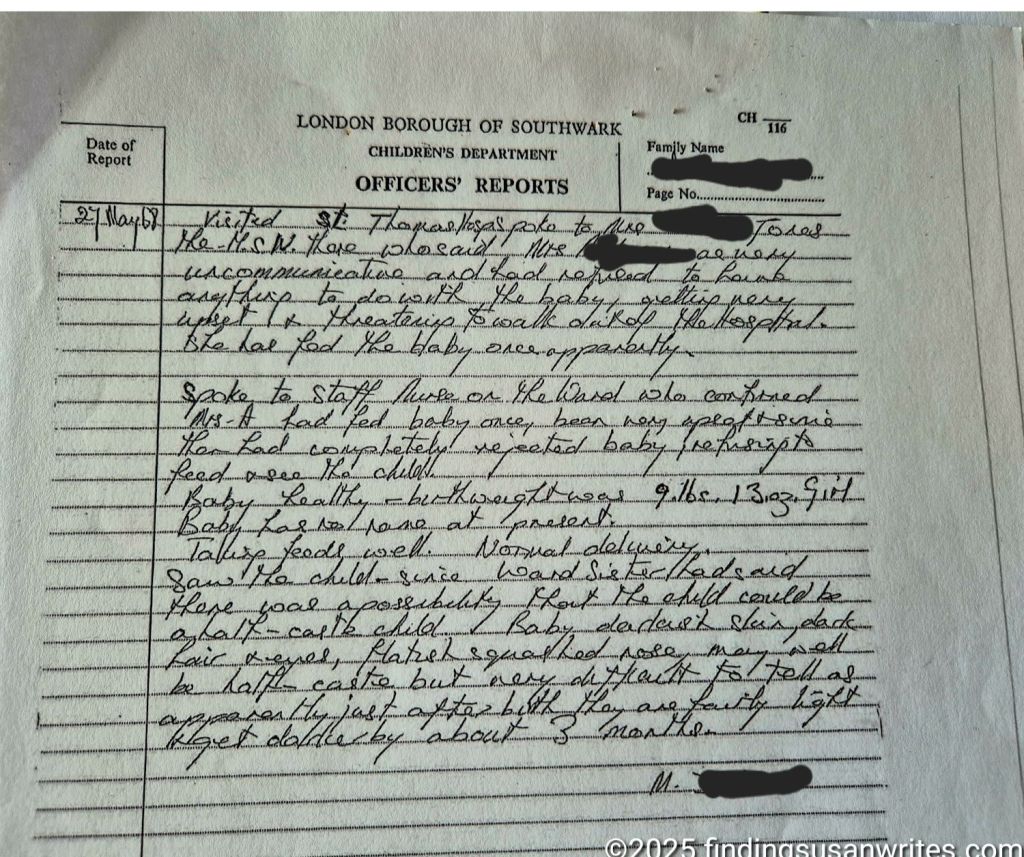 LONDON BOROUGH OF SOUTHWARK
CH
116
Date of
Report
CHILDREN'S DEPARTMENT
Family Name
OFFICERS' REPORTS
Page No.
27 May 68
Visited St. Thomas Hosp spoke to Mrs Jones
the M.S.W. there who said Mrs very
uncommunicative and had refused to have
anything to do with the baby, getting very
upset & threatening to walk out of the Hospital.
She has fed the baby once apparently.
Spoke to Staff Nurse on the Ward who confirmed
Mrs. A had fed baby once, been very upset & since
then had completely rejected baby refusing to
feed & see the child.
Baby healthy - birthweight was 9.lbs. 13.oz. Girl
Baby has no name at present.
Taking feeds well. Normal delivery.
Saw the child - since Ward Sister had said
there was a possibility that the child could be
a half-caste child. Baby darkish skin, dark
hair & eyes, flatish squashed nose, may well
be half caste but very difficult to tell as
apparently just after birth they are fairly light
& get darker by about 3 months.
M.
©2025 findingsusanwrites.com